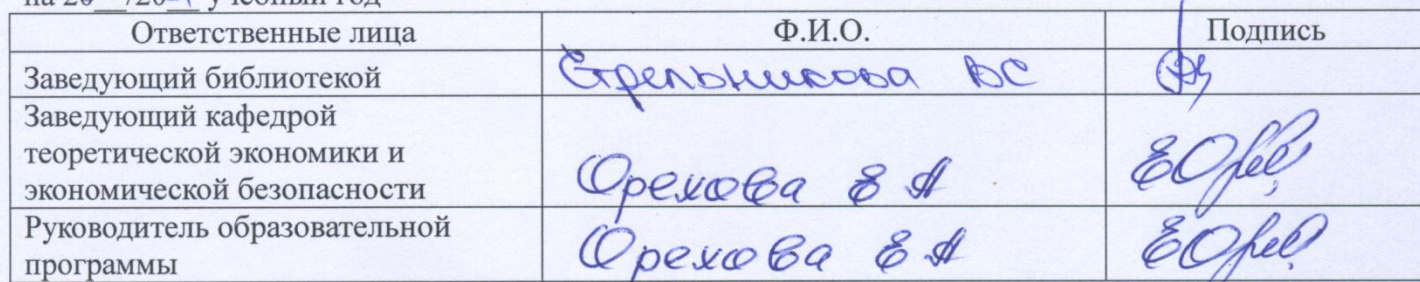 Ответственные лица Ф.И.О. Подпись
Заведующий библиотекой Стрельникова ВС
Заведующий кафедрой
теоретической экономики и
экономической безопасности Орехова Е А
Руководитель образовательной
программы Орехова Е А